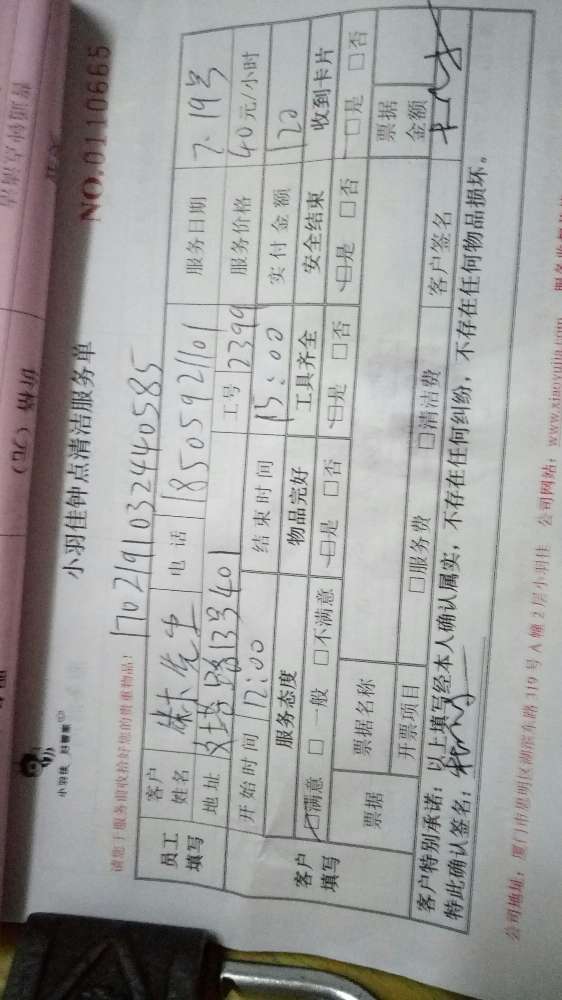 小羽佳 好管家
小羽佳钟点清洁服务单
NO.0110665
请您于服务前收拾好您的贵重物品!
1702191032440585
员工填写 客户姓名 先生 电话 18505921101 服务日期 7.19号
地址 13号401 工号 2399 服务价格 40元/小时
开始时间 12:00 结束时间 15:00 实付金额 120
客户填写 服务态度 物品完好 工具齐全 安全结束 收到卡片
☑满意 □一般 □不满意 ☑是 □否 ☑是 □否 ☑是 □否 □是 □否
票据 票据名称 票据金额
开票项目 □服务费 □清洁费 客户签名
客户特别承诺:以上填写经本人确认属实,不存在任何纠纷,不存在任何物品损坏。
特此确认签名:
公司地址:厦门市思明区湖滨东路319号A幢2层小羽佳 公司网站:www.xiaoyujia.com